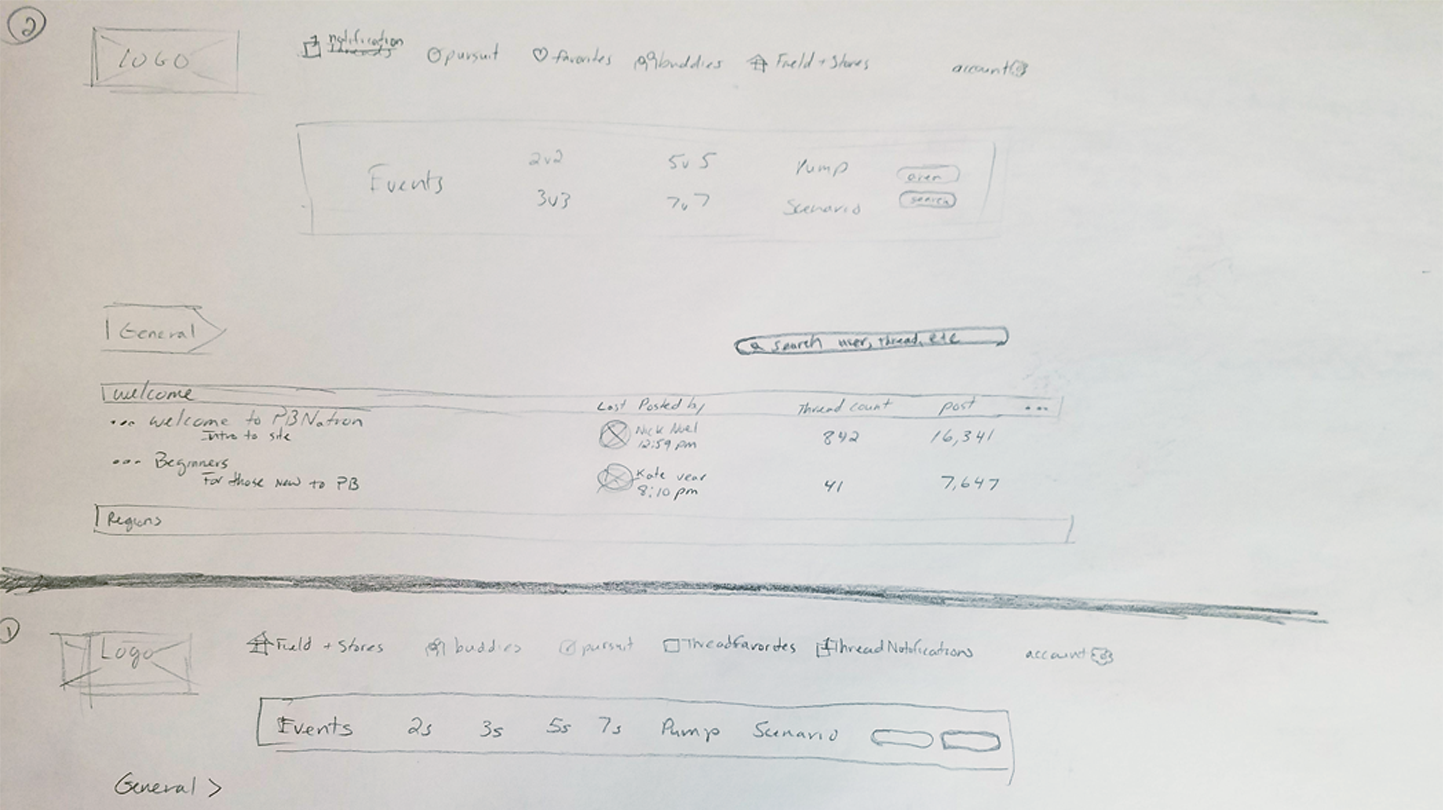 2
LOGO
notification
pursuit
favorites
buddies
Field + Stores
account
Events
2v2
5v5
Pump
3v3
7v7
Scenario
search
General
search user, thread, etc
welcome
Last Posted by
Thread count
post
...
... welcome to PBNation
Intro to site
Nick Nuel
12:59 pm
842
16,341
... Beginners
For those New to PB
Kate
8:10 pm
41
7,647
Regions
1
Logo
Field + Stores
buddies
pursuit
Threadfavorites
Thread Notifications
account
Events 2s 3s 5s 7s Pump Scenario
General >